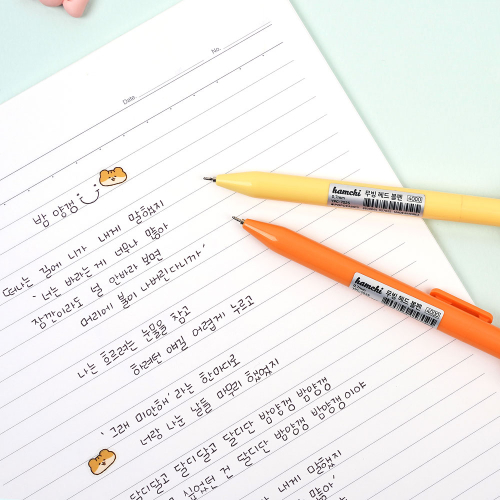 Date
No.
밤 양갱
떠나는 길에 니가 내게 말했지
'너는 바라는 게 너무나 많아
잠깐이라도 널 안바라 보면
머리에 불이 나버린다니까'
나는 흐르려는 눈물을 참고
하려던 얘길 어렵게 누르고
'그래 미안해' 라는 한마디로
너랑 나눈 날들 마무리 했었지
달디달고 달디단 밤양갱 밤양갱
싶었던 건 달디단 밤양갱 밤양갱이야
내게 말했지
많아'
hamchi 무빙 헤드 볼펜 4000
0.7mm
hamchi 무빙 헤드 볼펜 4000